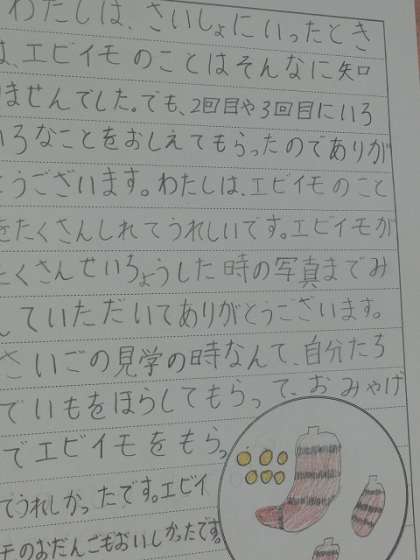 わたしは、さいしょにいったとき
は、エビイモのことはそんなに知
ませんでした。でも、2回目や3回目にいろ
いろなことをおしえてもらったのでありが
とうございます。わたしは、エビイモのこと
をたくさんしれてうれしいです。エビイモが
たくさんせいちょうした時の写真までみ
していただいてありがとうございます。
さいごの見学の時なんて、自分たろ
でいもをほらしてもらって、おみやげ
でエビイモをもらっ
てうれしかったです。エビイ
モのおだんごもおいしかったです。